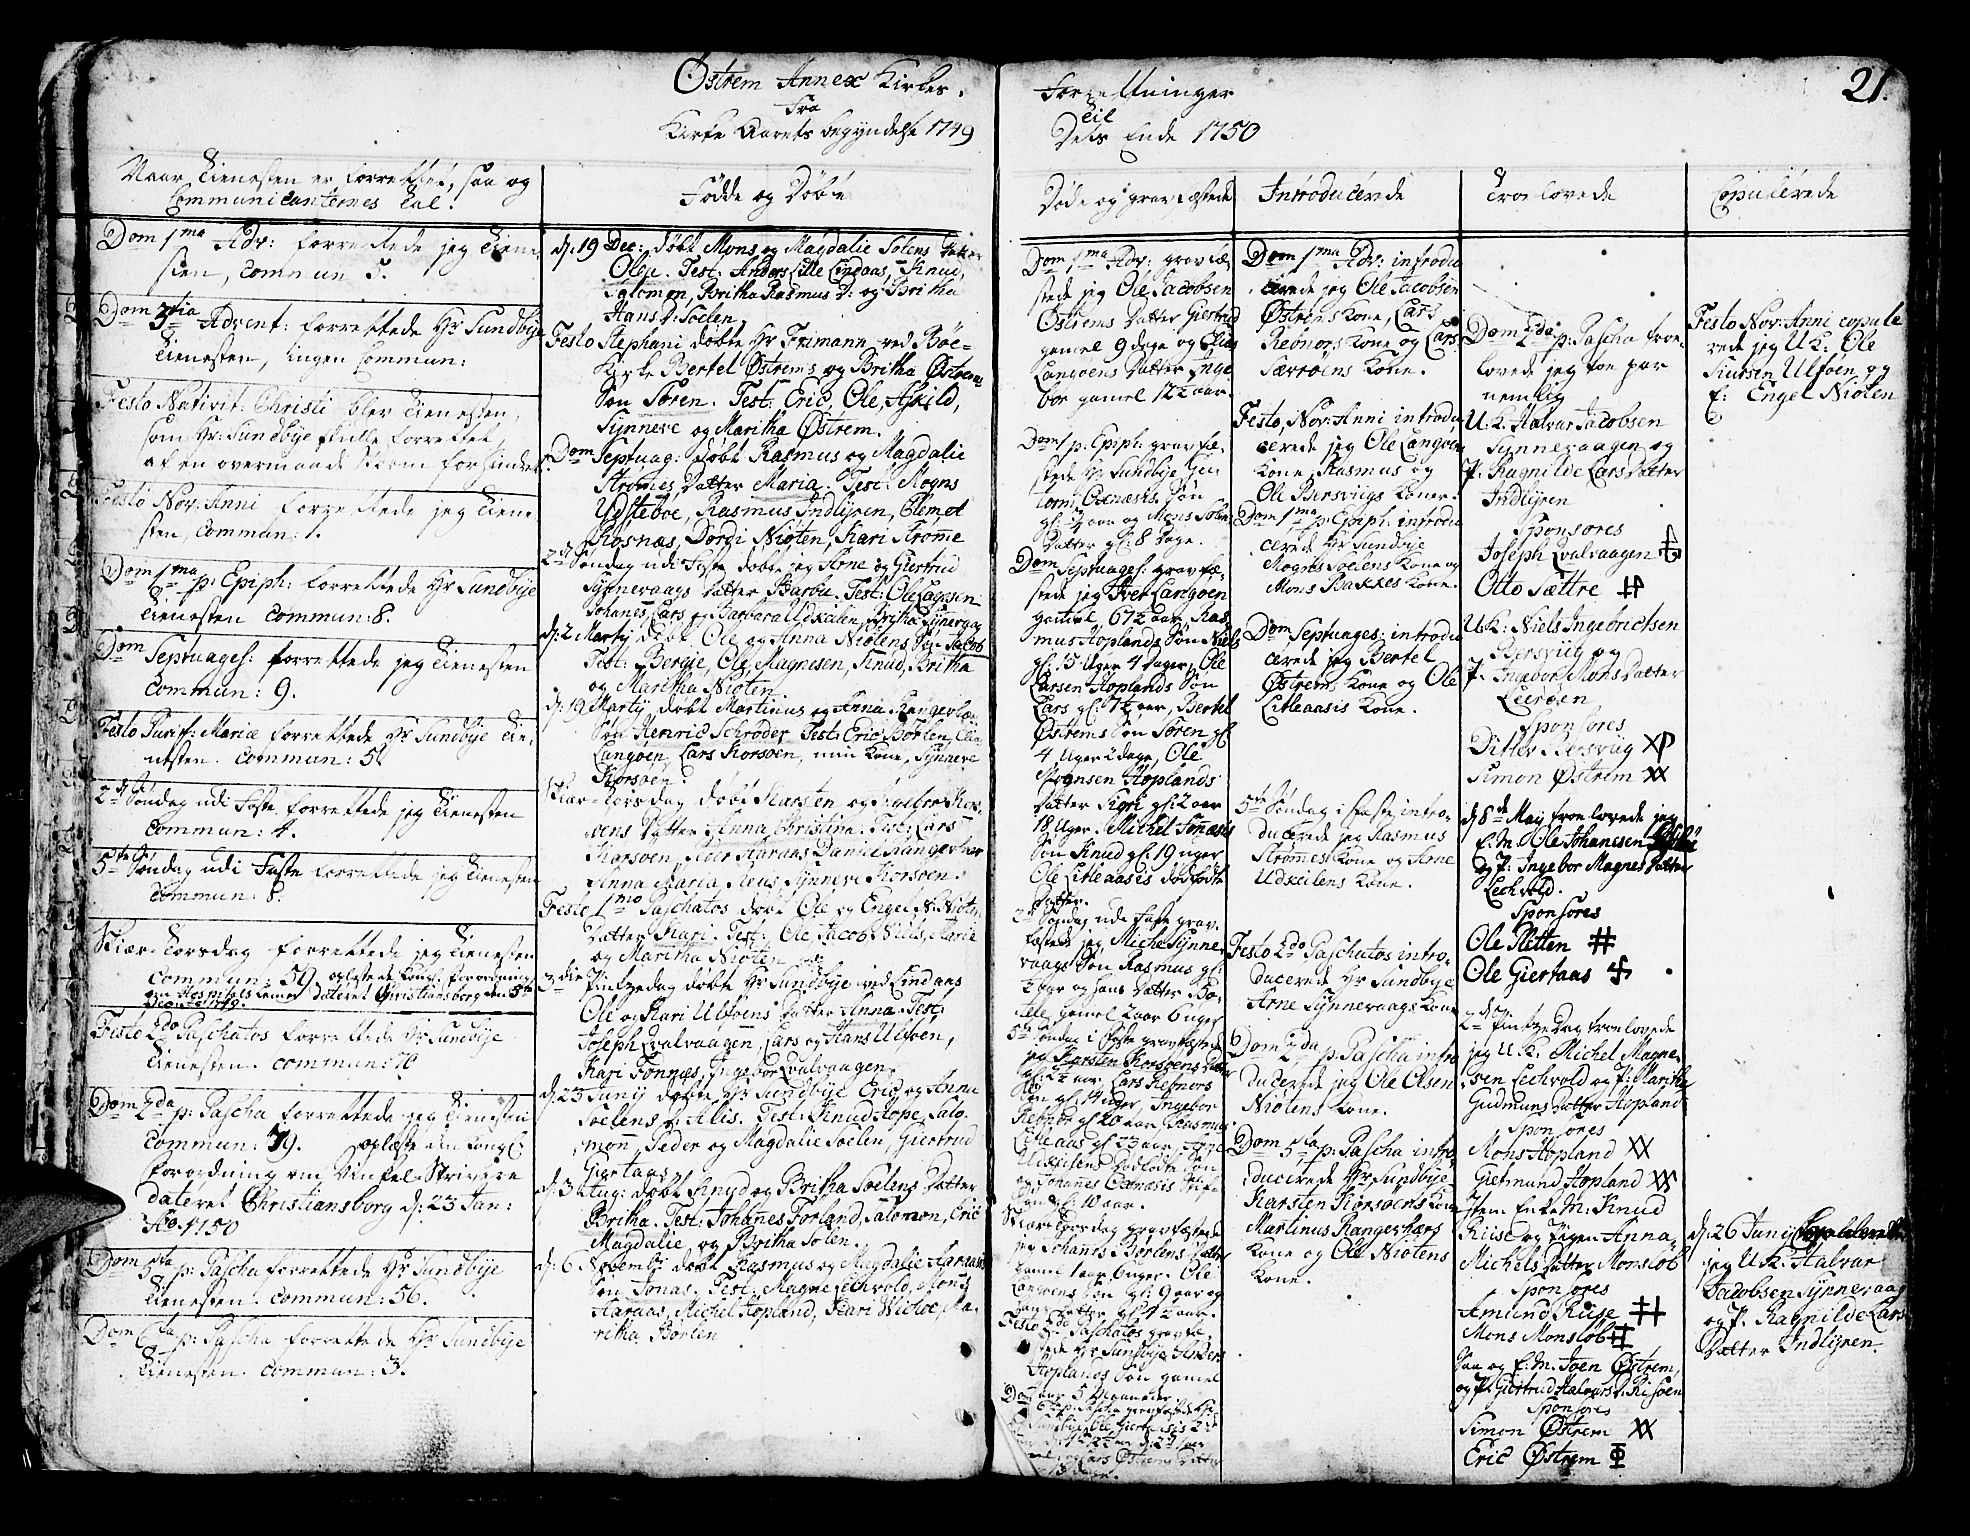 Østrem Annex Kirkes.
Fra
Kirke Aarets begyndelse 1749
Forrettninger
til
Dets Ende 1750
21.
Naar Tienesten er forrettet, saa og
Communicanternes Tal.
Dom 1ma Adv: forrettede jeg Tiene
sten, Commun 5.
Dom 3tia Advent: forrettede Hr Sundbye
Tienesten, ingen Commun:
Festo Nativit: Christi blev Tienesten,
som Hr: Sundbye skulle forrettet,
af en overmaade Storm forhindret.
Festo Nov: Anni forrettede jeg Tiene
sten, Commun: 1.
Dom 1ma p: Epiph: forrettede Hr Sundbye
Tienesten Commun: 8.
Dom Septuages: forrettede jeg Tienesten
Commun: 9.
Festo Purif: Mariæ forrettede Hr Sundbye Tie,
nesten. Commun: 5
2d Søndag udi Faste forrettede jeg Tienesten
Commun: 4.
5te Søndag udi Faste forrettede jeg Tienesten
Commun: 8.
Skiær-Torsdag forrettede jeg Tienesten
Commun: 59.
dateret Christiansborg den 5te
Festo 2do Paschatos forrettede Hr Sundbye
Tienesten. Commun: 70
Dom 2da p: Pascha forrettede jeg Tienesten
Commun: 79. oplæste den Kongl:
forordning om
dateret Christiansborg d: 23 Jan:
Ao 1750
Dom 5ta p: Pascha forrettede Hr Sundbye
Tienesten. Commun: 56.
Dom 6ta p: Pascha forrettede Hr Sundbye
Tienesten. Commun: 3.
Fødde og Døbte
d: 19 Dec: døbt Mons og Magdalie Solens Datter
Olena. Test: Anders Lille Lindaas, Knud,
Salomon, Britha Rasmus D: og Britha
Hans D: Soelen.
Festo Stephani døbte Hr Frimann ved Bøe-
Kirke Bertel Østrems og Britha Østrems
Søn Søren. Test: Eric, Ole, Askild,
Synneve og Maritha Østrem.
Dom Septuag: døbt Rasmus og Magdalie
Strømes Datter Maria. Test: Mogns
Udsteboe, Rasmus Indlijren, Clemet
Rosnæs, Dordi Niøten, Kari Strøme
2d Søndag udi Faste døbte jeg Arne og Giertrud
Synneraags Datter Barbu. Test: Ole Larsen
Johanes, Lars og Barbara Udskeilen, Britha Synnerag
d: 2 Martij døbt Ole og Anna Niøtens Søn Jacob
Test: Bergie, Ole, Magnesen, Knud, Britha
og Maritha Niøten.
d: 19 Martij døbt Martinus og Anna
Søn Henric Schrøder. Test: Eric Børlen, Elia
Langøen, Lars Korsøen, min Kone, Synneve
Korsøen.
Skiær-Torsdag døbt Karsten og Ingebor Kor
søens Datter Anna Christina. Test: Lars
Korsøen, Peder Haraas, Daniel Rangerhær
Anna Maria Reus, Synneve Korsøen.
Festo 1mo Paschatos døbt Ole og Engel N: Niøten
Datter Kari. Test: Ole, Jacob, Niels, Marie
og Maritha Niøten
3die Pintzedag døbte Hr Sundbye ved Lindaas
Ole og Kari Ulføens Datter Anna. Test:
Joseph Qvalvaagen, Lars og Hans Ulføen,
Kari Fonnæs, Ingebor Qvalvaagen.
d: 23 Junij døbte Hr Sundbye Eric og Anna
Soelens D: Alis. Test: Knud Hope, Salo
mon, Peder og Magdalie Soelen, Giertrud
Giertaas.
d: 3 Aug: døbt Knud og Britha Soelens Datter
Britha. Test: Johanes Forland, Salomon, Eric
Magdalie og Britha Solen.
d: 6 Novemb: døbt Rasmus og Magdalie Haraas
Søn Jonas. Test: Magne Lechvold, Mons
Haraas, Michel Hopland, Kari Wichøe, Ma
ritha Børlen
Døde og grav fæstede
Dom 1ma Adv: grav fæ
stede jeg Ole Jacobsen
Østrems Datter Giertrud
gamel 9 dage og Elias
Langøens Datter Inge
bor gamel 12½ aar.
Dom 1 p: Epiph: grav fæ
stede Hr Sundbye Gut
torm Oxenæsis Søn
gl: ½ aar og Mons Solens
Datter gl: 8 Dage.
Dom Septuages: grav fæ-
stede jeg Iver Langøen
gamel 67½ aar, Ras
mus Hoplands Søn Niels
gl: 5 Uger 4 Dager, Ole
Larsen Hoplands Søn
Lars gl: 1½ aar, Bertel
Østrems Søn Søren gl
4 Uger 2 dage, Ole
Mognsen Hoplands
Datter Sigri gl: 2 aar
18 Uger. Michel Fonæsis
Søn Knud gl: 19 uger
Ole Litleaasis dødfødte
Datter.
2d Søndag udi Faste grav,
fæstede jeg Michel Synne
vaags Søn Rasmus gl:
½ aar og hans Datter Bo
tille gamel 2 aar 6 uger
5te Søndag i Faste gravfæstede
jeg Karsten Korsøens Datter
gl: 2½ aar, Lars Rebnors
Søn gl: 14 uger, Ingebor
Rebnor gl 20 aar, Rasmus
Litleaas gl: 23 aar, Arne
Udskeilens dødfødte Søn
og Johanes Oxenæsis Stif-
Søn gl: 10 aar.
Skiær Torsdag gravfæstede
jeg Johanes Børlens Datter
gamel 1 aar 6 uger. Ole
Langøens Søn gl: 9 aar og
hans Datter gl: 4½ aar.
Festo 2do Paschatos gravfæ,
stede Hr Sundbye Anders
Hoplands Søn gamel
aar 5 Maaneder
Dom 6ta p: Pascha gravfæstede Hr
Sundbye Ole Giertsens 2 de
Introducerede
Dom 1ma Adv: introdu
cerede jeg Ole Jacobsen
Østrems Kone, Lars
Rebnors Kone og Lars
Særrøens Kone.
Festo Nov: Anni introdu
cerede jeg Ole Langøens
Kone, Rasmus og
Ole Bersviigs Koner.
Dom 1ma p: Epiph: introdu
cerede Hr Sundbye
Mogns Soelens Kone og
Mons Bakkes Kone.
Dom Septuages: introdu
cerede jeg Bertel
Østrems Kone og Ole
Litleaasis Kone.
5te Søndag i Faste intro-
ducerede jeg Rasmus
Strømes Kone og Arne
Udskeilens Kone.
Festo 2do Paschatos intro-
ducerede Hr Sundbye
Arne Synnevaags Kone
Dom 2da p: Pascha intro
ducerede jeg Ole Olsen
Niøtens Kone.
Dom 5ta p: Pascha intro
ducerede Hr Sundbye
Karsten Korsøens Kone
Martinus Rangerhærs
Kone og Ole Niøtens
Kone.
Troelovede
Dom 2da p: Pascha troe-
lovede jeg toe par
nemlig
U:K: Halvar Jacobsen
Synnevaagen og
P: Ragnilde Lars Datter
Indlijren
Sponsores
Joseph Qvalvaagen
Otto Sættre
U:K: Niels Ingebrichtsen
Bersviig og
P: Ingebor Mons Datter
Leerøen
Sponsores
Ditlev Bersviig
Simon Østrem
d: 8de Maij troelovede jeg
E:M: Ole Johanesen
og P: Ingebor Magnes Datter
Lechvold.
Sponsores
Ole Sletten
Ole Giertaas
2d Pintze Dag troelovede
jeg U:K: Michel Magne,
sen Lechvold og P: Maritha
Gudmuns Datter Hopland
Sponsores
Mons Hopland
Gietmund Hopland
Item Enke M: Knud
Riise og Pigen Anna
Michels Datter Monsløb
Sponsores
Amund Riise
Mons Monsløb
Saa og E:M: Joen Østrem,
og P: Giertrud Halvars D: Risøen
Sponsores
Simon Østrem
Eric Østrem
Copulerede
Festo Nov: Anni copule
rede jeg U:K: Ole
Siursen Ulføen og
E: Engel Niøten
d: 26 Junij Copulerede
jeg U:K: Halvar
Jacobsen Synnevaag
og P: Ragnilde Lars
Datter Indlijren.